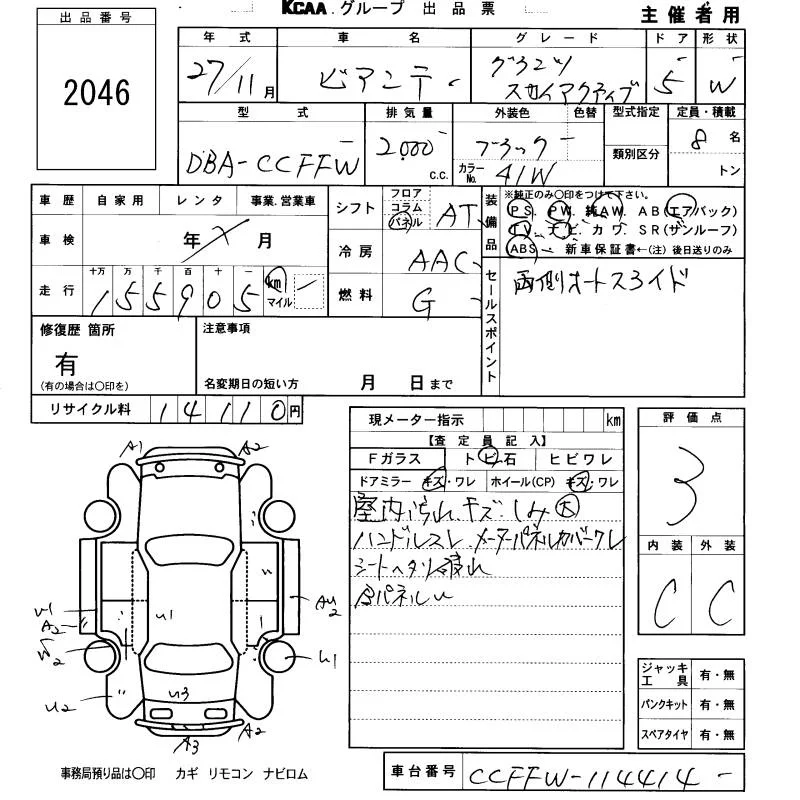 KCAA.グループ 出品票
主催者用
出品番号
2046
年式 車名 グレード ドア 形状
27/11月 ビアンテ グランツ スカイアクティブ 5 W
型式 排気量 外装色 色替 型式指定 定員・積載
DBA-CCFFW 2,000 c.c. ブラック カラーNo. 41W 類別区分 8名 トン
車歴 自家用 レンタ 事業.営業車
車検 年 月
走行 十万 万 千 百 十 一
155905 km マイル
シフト フロア コラム パネル AT
冷房 AAC
燃料 G
装備品 ※純正のみ〇印をつけて下さい。
PS. PW. 純AW. AB(エアバック)
TV. ナビ. カワ. SR(サンルーフ)
ABS. 新車保証書←(注)後日送りのみ
セールスポイント
両側オートスライド
修復歴 箇所
有
(有の場合は〇印を)
注意事項
名変期日の短い方 月 日まで
リサイクル料 14110円
現メーター指示 km
【査定員記入】
Fガラス トビ石 ヒビワレ
ドアミラー キズ・ワレ ホイール(CP) キズ・ワレ
室内汚れ.キズ.しみ大
ハンドルスレ.メーターパネルカバーワレ
シートヘタリ
パネル
評価点
3
内装 外装
C C
ジャッキ 工具 有・無
パンクキット 有・無
スペアタイヤ 有・無
A1 A2
U1 A2 U1 AU2
W2 U1
U2 U3
A3 A2
事務局預り品は〇印 カギ リモコン ナビロム
車台番号 CCFFW-114414